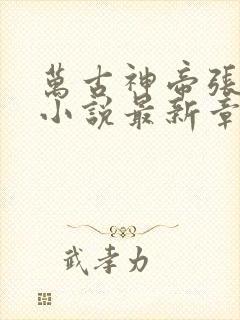 萬古神帝張
小說最新章
武孝力